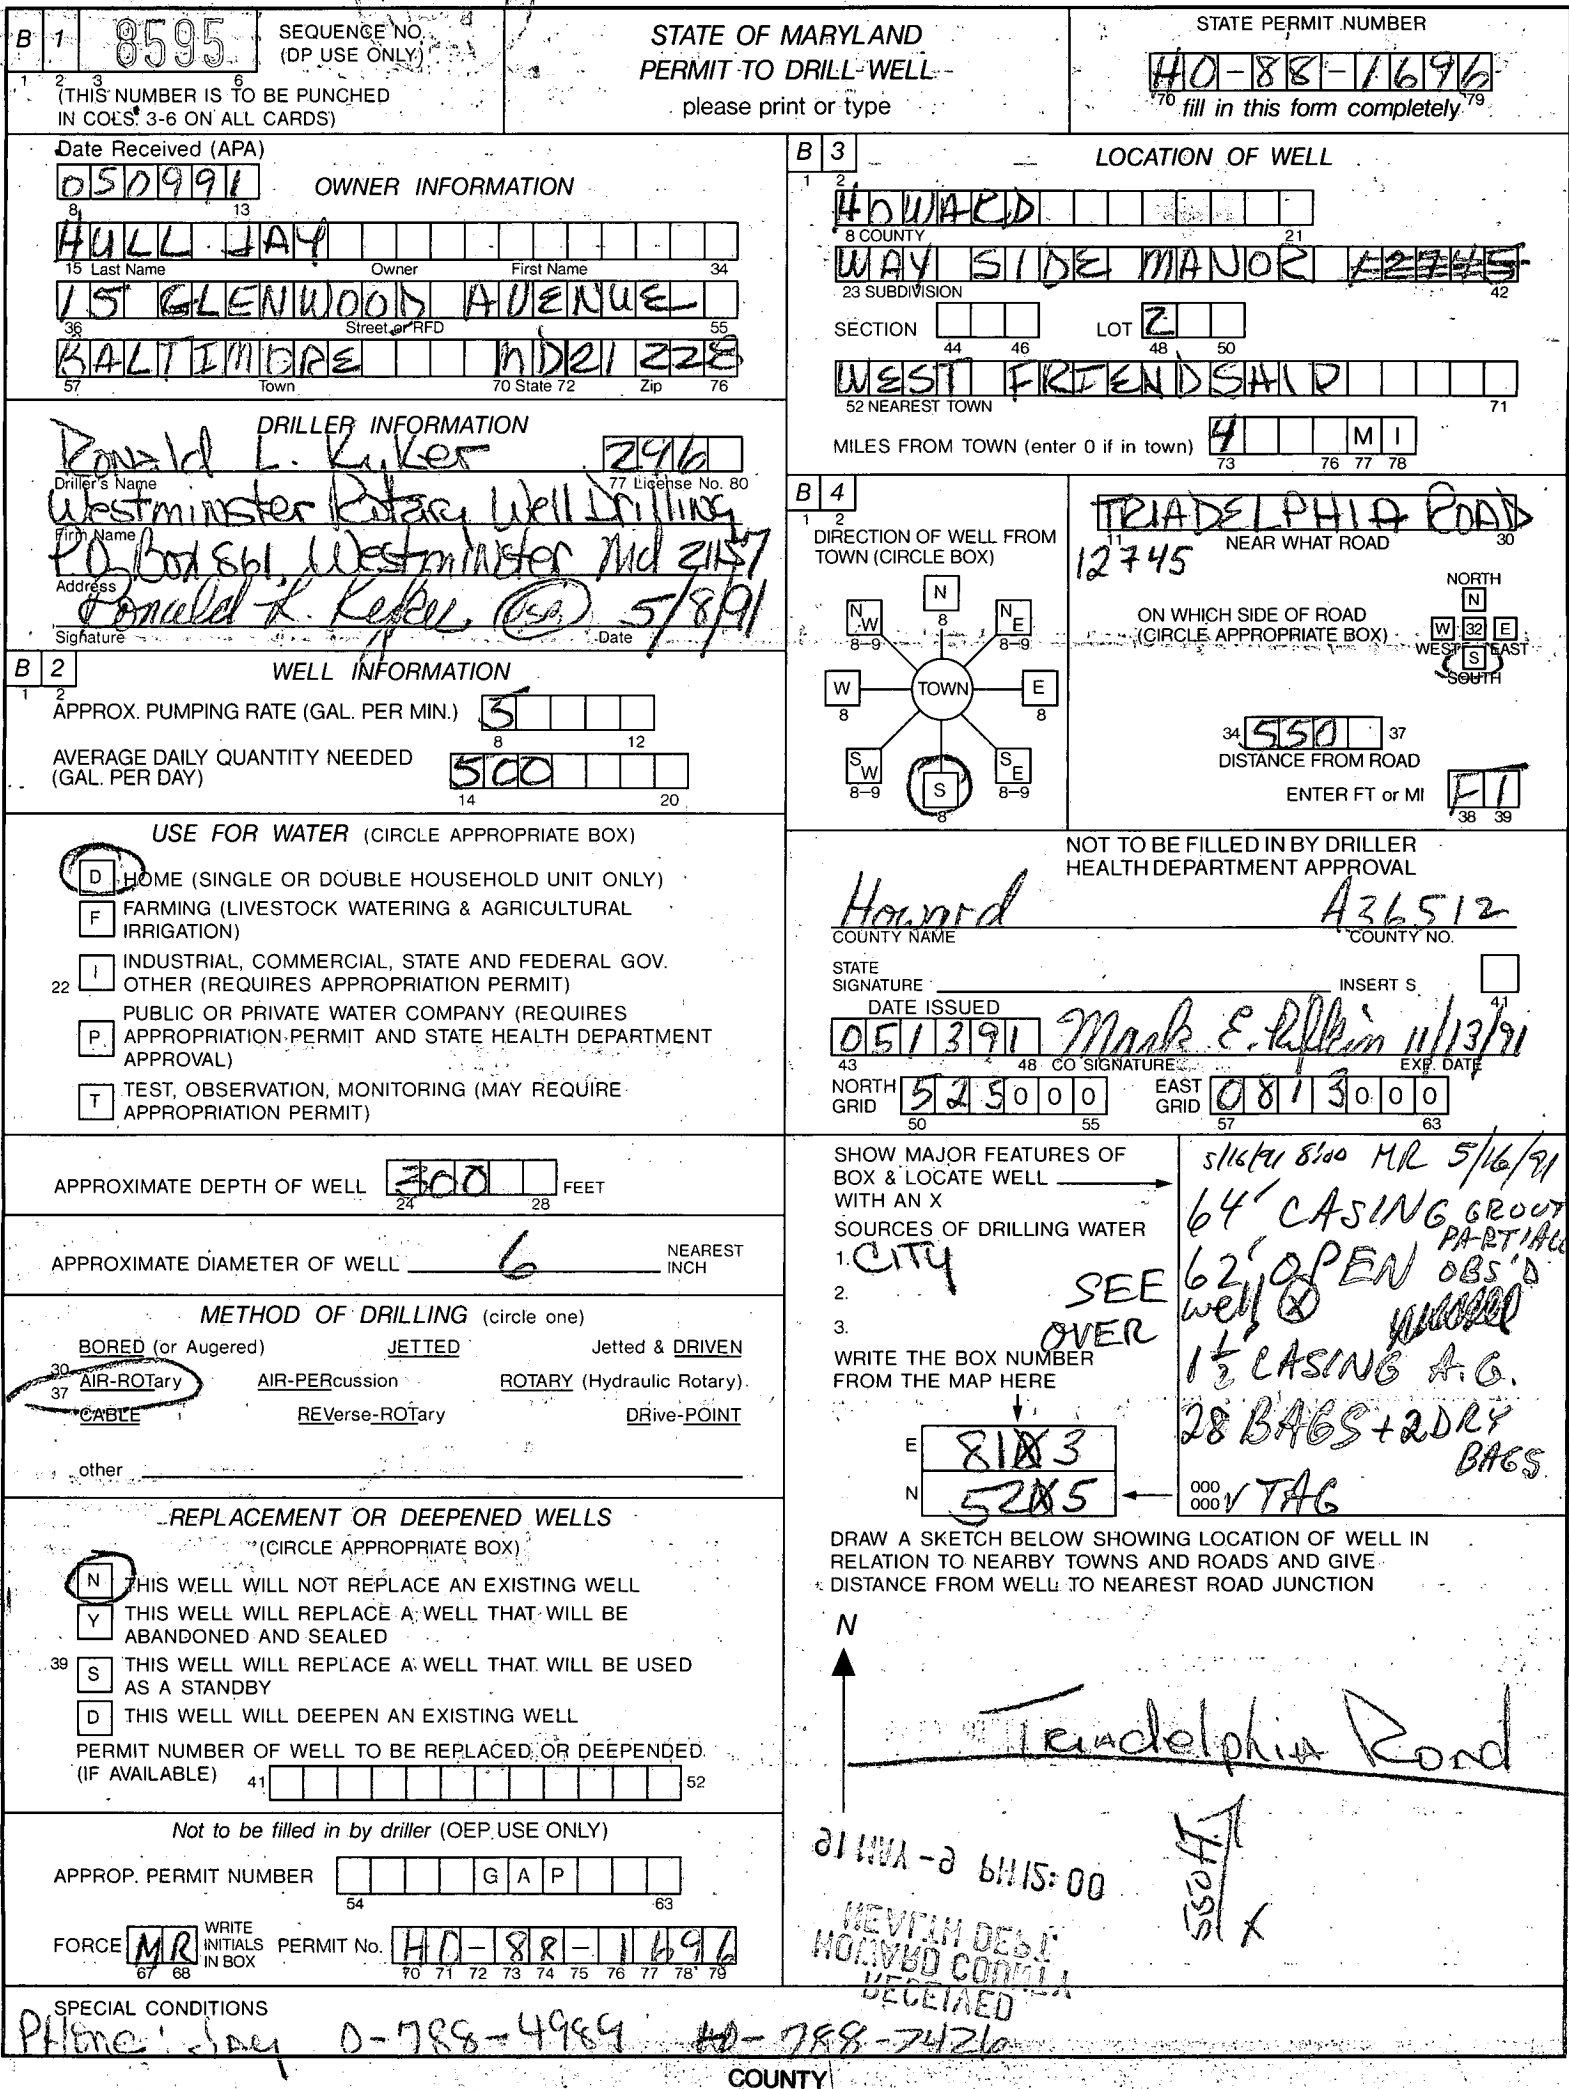 B 1 8595 SEQUENCE NO.
(DP USE ONLY)
1 2 3 6
(THIS NUMBER IS TO BE PUNCHED
IN COLS. 3-6 ON ALL CARDS)
STATE OF MARYLAND
PERMIT TO DRILL WELL
please print or type
STATE PERMIT NUMBER
HO-88-1696
70 79
fill in this form completely
Date Received (APA)
050991
8 13
OWNER INFORMATION
HULL JAY
15 Last Name Owner First Name 34
15 GLENWOOD AVENUE
36 Street or RFD 55
BALTIMORE MD 21228
57 Town 70 State 72 Zip 76
DRILLER INFORMATION
Ronald L. Kyker 296
Driller's Name 77 License No. 80
Westminster Rotary Well Drilling
Firm Name
P.O. Box 861, Westminster Md 21157
Address
Ronald L. Kyker 5/8/91
Signature Date
B 2 WELL INFORMATION
1 2
APPROX. PUMPING RATE (GAL. PER MIN.) 5
8 12
AVERAGE DAILY QUANTITY NEEDED
(GAL. PER DAY) 500
14 20
USE FOR WATER (CIRCLE APPROPRIATE BOX)
D HOME (SINGLE OR DOUBLE HOUSEHOLD UNIT ONLY)
F FARMING (LIVESTOCK WATERING & AGRICULTURAL
IRRIGATION)
22 I INDUSTRIAL, COMMERCIAL, STATE AND FEDERAL GOV.
OTHER (REQUIRES APPROPRIATION PERMIT)
P PUBLIC OR PRIVATE WATER COMPANY (REQUIRES
APPROPRIATION PERMIT AND STATE HEALTH DEPARTMENT
APPROVAL)
T TEST, OBSERVATION, MONITORING (MAY REQUIRE
APPROPRIATION PERMIT)
APPROXIMATE DEPTH OF WELL 300 FEET
24 28
APPROXIMATE DIAMETER OF WELL 6 NEAREST
INCH
METHOD OF DRILLING (circle one)
BORED (or Augered) JETTED Jetted & DRIVEN
30
37 AIR-ROTary AIR-PERcussion ROTARY (Hydraulic Rotary)
CABLE REVerse-ROTary DRive-POINT
other
REPLACEMENT OR DEEPENED WELLS
(CIRCLE APPROPRIATE BOX)
N THIS WELL WILL NOT REPLACE AN EXISTING WELL
Y THIS WELL WILL REPLACE A WELL THAT WILL BE
ABANDONED AND SEALED
39 S THIS WELL WILL REPLACE A WELL THAT WILL BE USED
AS A STANDBY
D THIS WELL WILL DEEPEN AN EXISTING WELL
PERMIT NUMBER OF WELL TO BE REPLACED OR DEEPENED
(IF AVAILABLE) 41 52
Not to be filled in by driller (OEP USE ONLY)
APPROP. PERMIT NUMBER G A P
54 63
FORCE MR WRITE
INITIALS
IN BOX PERMIT No. HO-88-1696
67 68 70 71 72 73 74 75 76 77 78 79
B 3 LOCATION OF WELL
1 2
HOWARD
8 COUNTY 21
WAY SIDE MANOR 12745
23 SUBDIVISION 42
SECTION LOT 2
44 46 48 50
WEST FRIENDSHIP
52 NEAREST TOWN 71
MILES FROM TOWN (enter 0 if in town) 4 M I
73 76 77 78
B 4
1 2
DIRECTION OF WELL FROM
TOWN (CIRCLE BOX)
N
8
NW NE
8-9 8-9
W TOWN E
8 8
SW SE
8-9 8-9
S
8
TRIADELPHIA ROAD
11 NEAR WHAT ROAD 30
12745
ON WHICH SIDE OF ROAD
(CIRCLE APPROPRIATE BOX)
NORTH
N
W 32 E
WEST EAST
S
SOUTH
34 550 37
DISTANCE FROM ROAD
ENTER FT or MI FT
38 39
NOT TO BE FILLED IN BY DRILLER
HEALTH DEPARTMENT APPROVAL
Howard A36512
COUNTY NAME COUNTY NO.
STATE
SIGNATURE INSERT S
41
DATE ISSUED
051391 Mark E. Rifkin 11/13/91
43 48 CO SIGNATURE EXP. DATE
NORTH
GRID 525000 EAST
GRID 0813000
50 55 57 63
SHOW MAJOR FEATURES OF
BOX & LOCATE WELL
WITH AN X
SOURCES OF DRILLING WATER
1. CITY
2.
3.
SEE
OVER
WRITE THE BOX NUMBER
FROM THE MAP HERE
E 813
N 525
5/16/91 8:00 MR 5/16/91
64' CASING GROUT
PARTIALL
62' OPEN OBS'D
well X
1 1/2' CASING A.G.
28 BAGS + 2 DRY
BAGS
000
000 √ TAG
DRAW A SKETCH BELOW SHOWING LOCATION OF WELL IN
RELATION TO NEARBY TOWNS AND ROADS AND GIVE
DISTANCE FROM WELL TO NEAREST ROAD JUNCTION
N
Triadelphia Road
550 ft
X
91 MAY -9 PM 12:00
HEALTH DEPT.
HOWARD COUNTY
RECEIVED
SPECIAL CONDITIONS
Phone: Jay 0-788-4989 788-7426
COUNTY